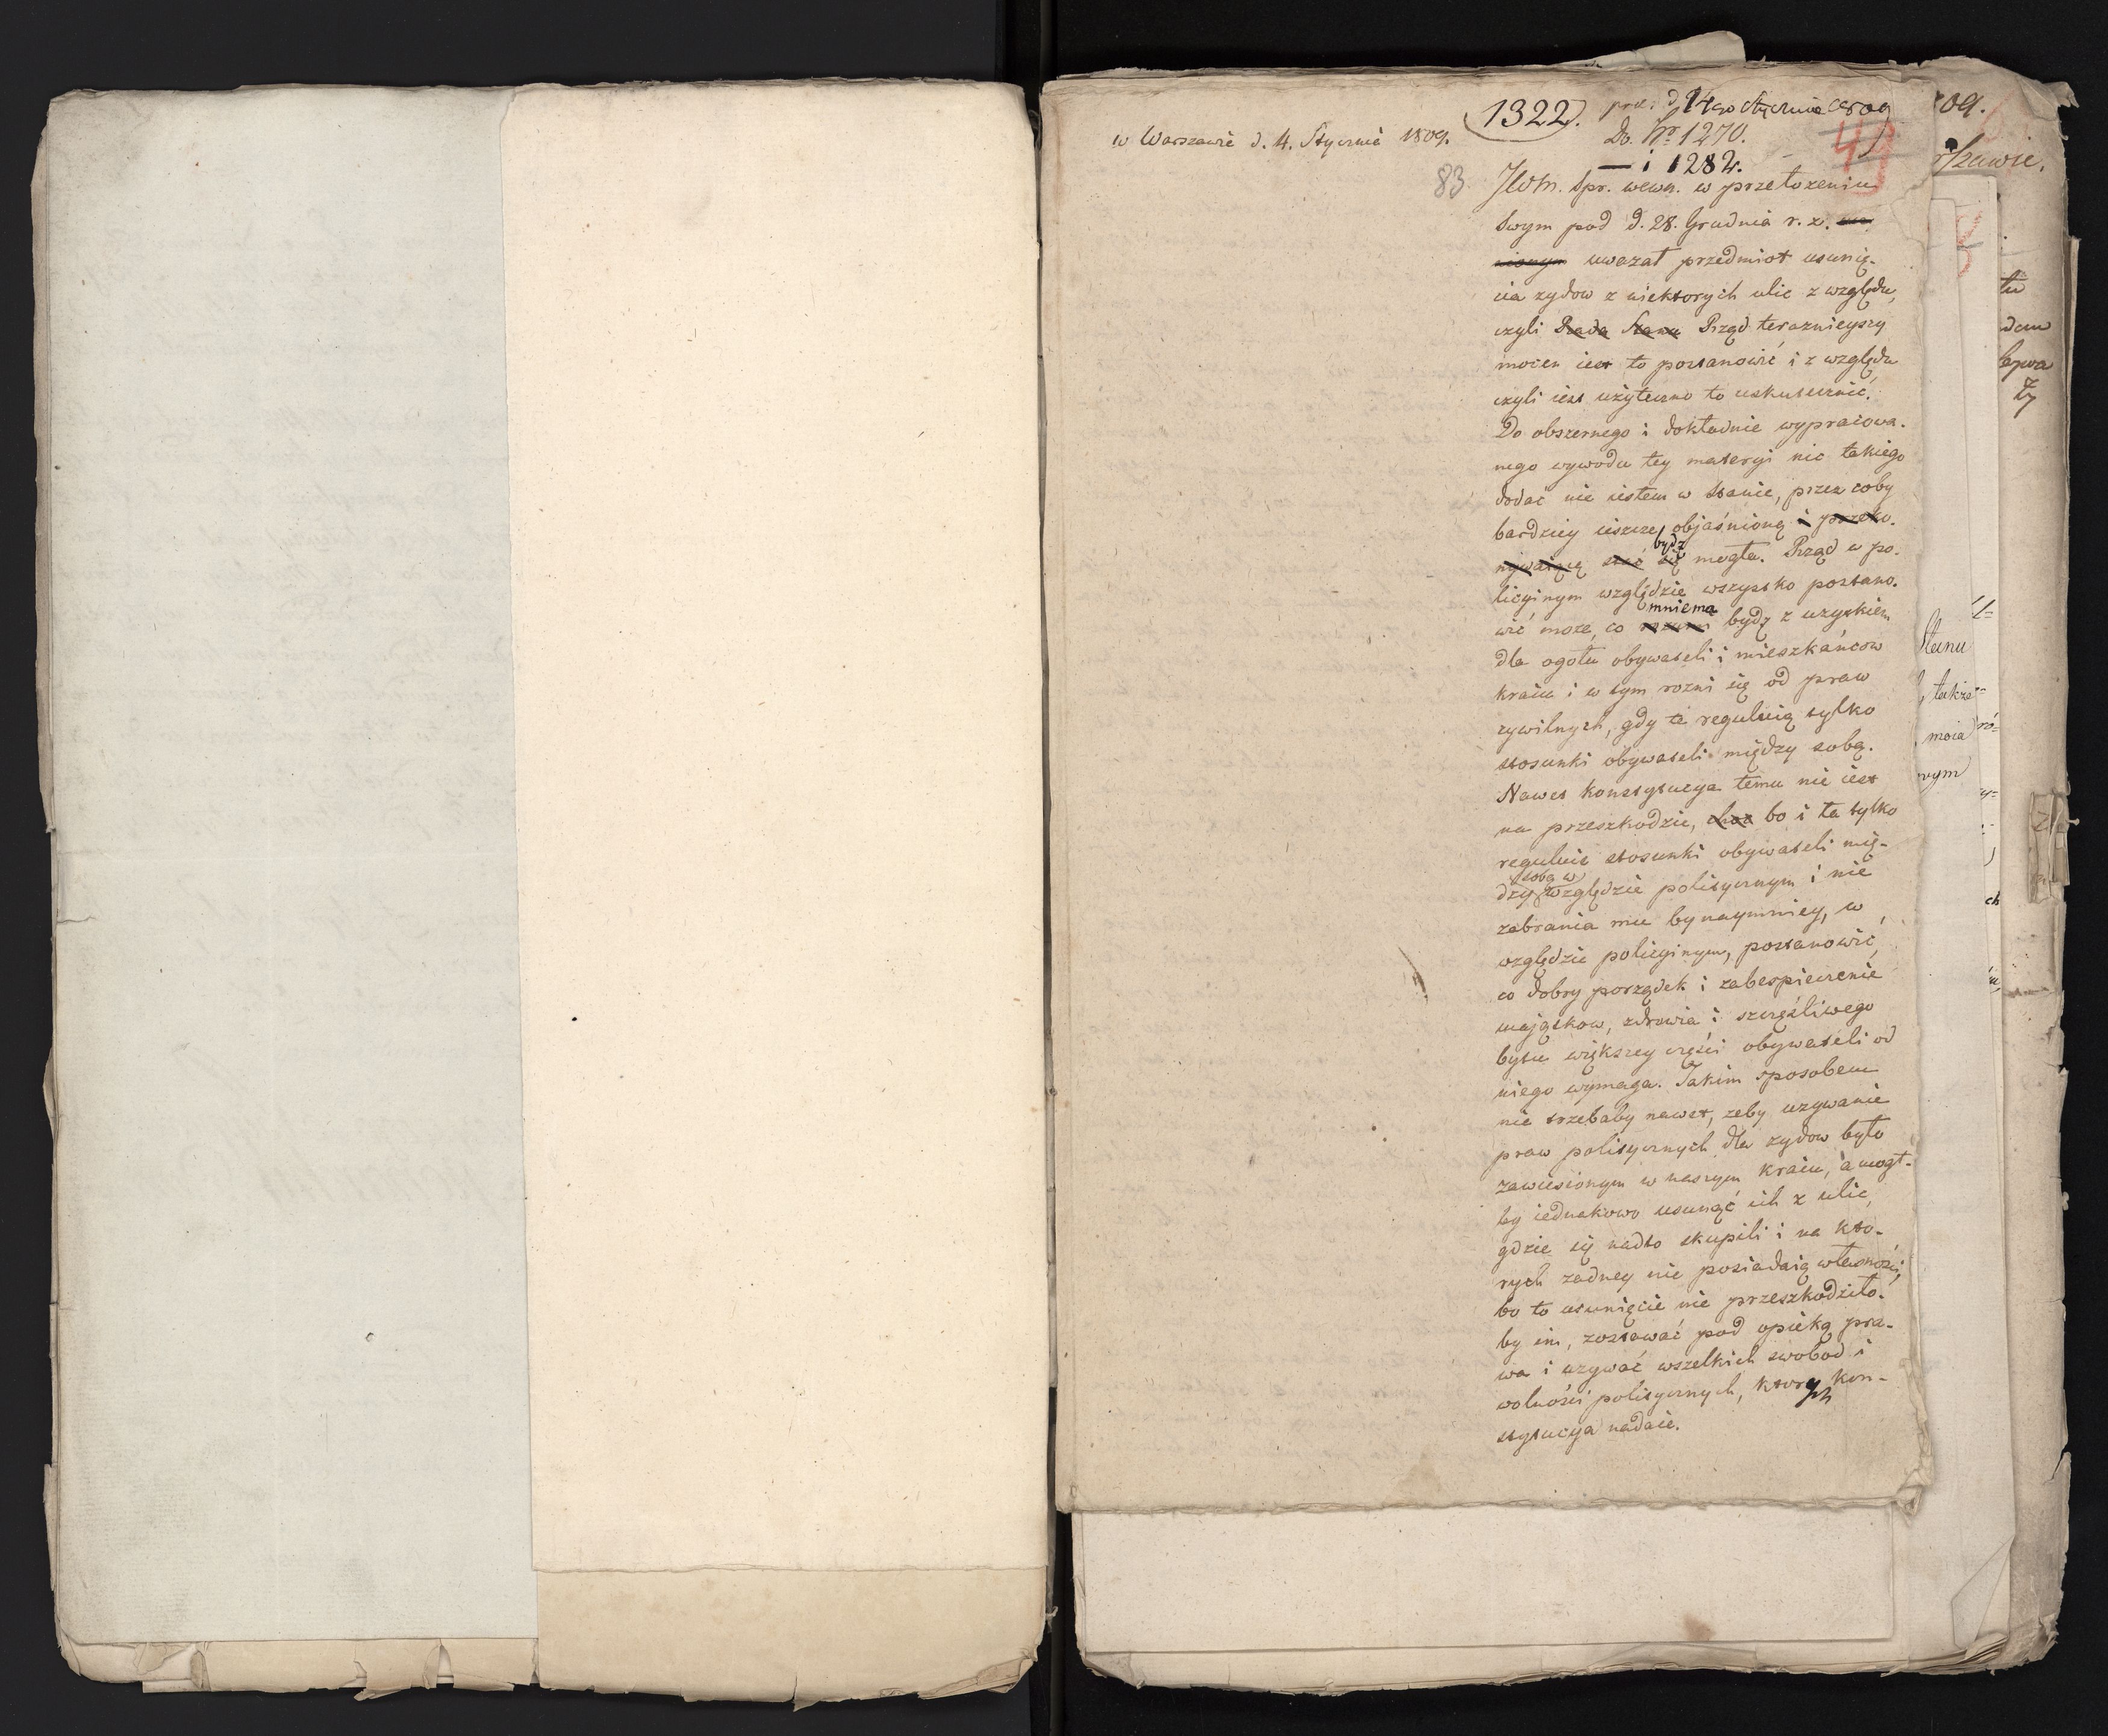 1322.
prae. d. 14go Stycznia 1809
Do. Nr. 1270.
— i 1282.
w Warszawie d. 4. Stycznia 1809.
83
JWM. Spr. wewn. w przełożeniu
swym pod d. 28. Grudnia r. z.
uwazał przedmiot usunię-
cia zydow z niektorych ulic z względu,
czyli Rada Stanu Rząd teraznieyszy
mocen iest to postanowić i z względu
czyli iest użyteczno to uskutecznić.
Do obszernego i dokładnie wypracowa-
nego wywodu tey materyi nic takiego
dodać nie iestem w stanie, przez coby
bardziey ieszcze objaśnioną i przeko-
nywaiącą stać się bydź mogła. Rząd w po-
licyinym względzie wszystko postano-
wić może, co mniema bydź z uzyskiem
dla ogołu obywateli i mieszkańcow
kraiu i w tym rozni się od praw
cywilnych, gdy te reguluią tylko
stosunki obywateli między sobą.
Nawet konstytucya temu nie iest
na przeszkodzie, choć bo i ta tylko
reguluie stosunki obywateli mię-
dzy sobą w względzie politycznym i nie
zabrania mu bynaymniey, w
względzie policyinym, postanowić,
co dobry porządek i zabespieczenie
majątkow, zdrowia i szczęśliwego
bytu większey części obywateli od
niego wymaga. Takim sposobem
nie trzebaby nawet, zeby uzywanie
praw politycznych dla zydow było
zawiesionym w naszym kraiu, a mogł-
by iednakowo usunąć ich z ulic,
gdzie się nadto skupili i na kto-
rych zadney nie posiadaią własności,
bo to usunięcie nie przeszkodziło-
by im, zostawać pod opieką pra-
wa i uzywać wszelkich swobod i
wolności politycznych, ktorych kon-
stytucya nadaie.
09.
rszawie.
Stanu
, także
moia
wym